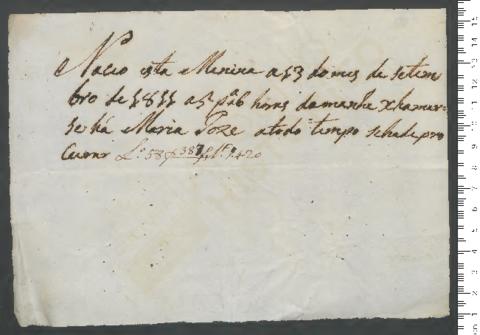 Naceo esta Menina a 13 do mes de setem
bro de 1811 a 5 horas da manhe xhamar
se há Maria Joze a todo tempo se hade pro
curar L.º 58 f 387 Nº 1420